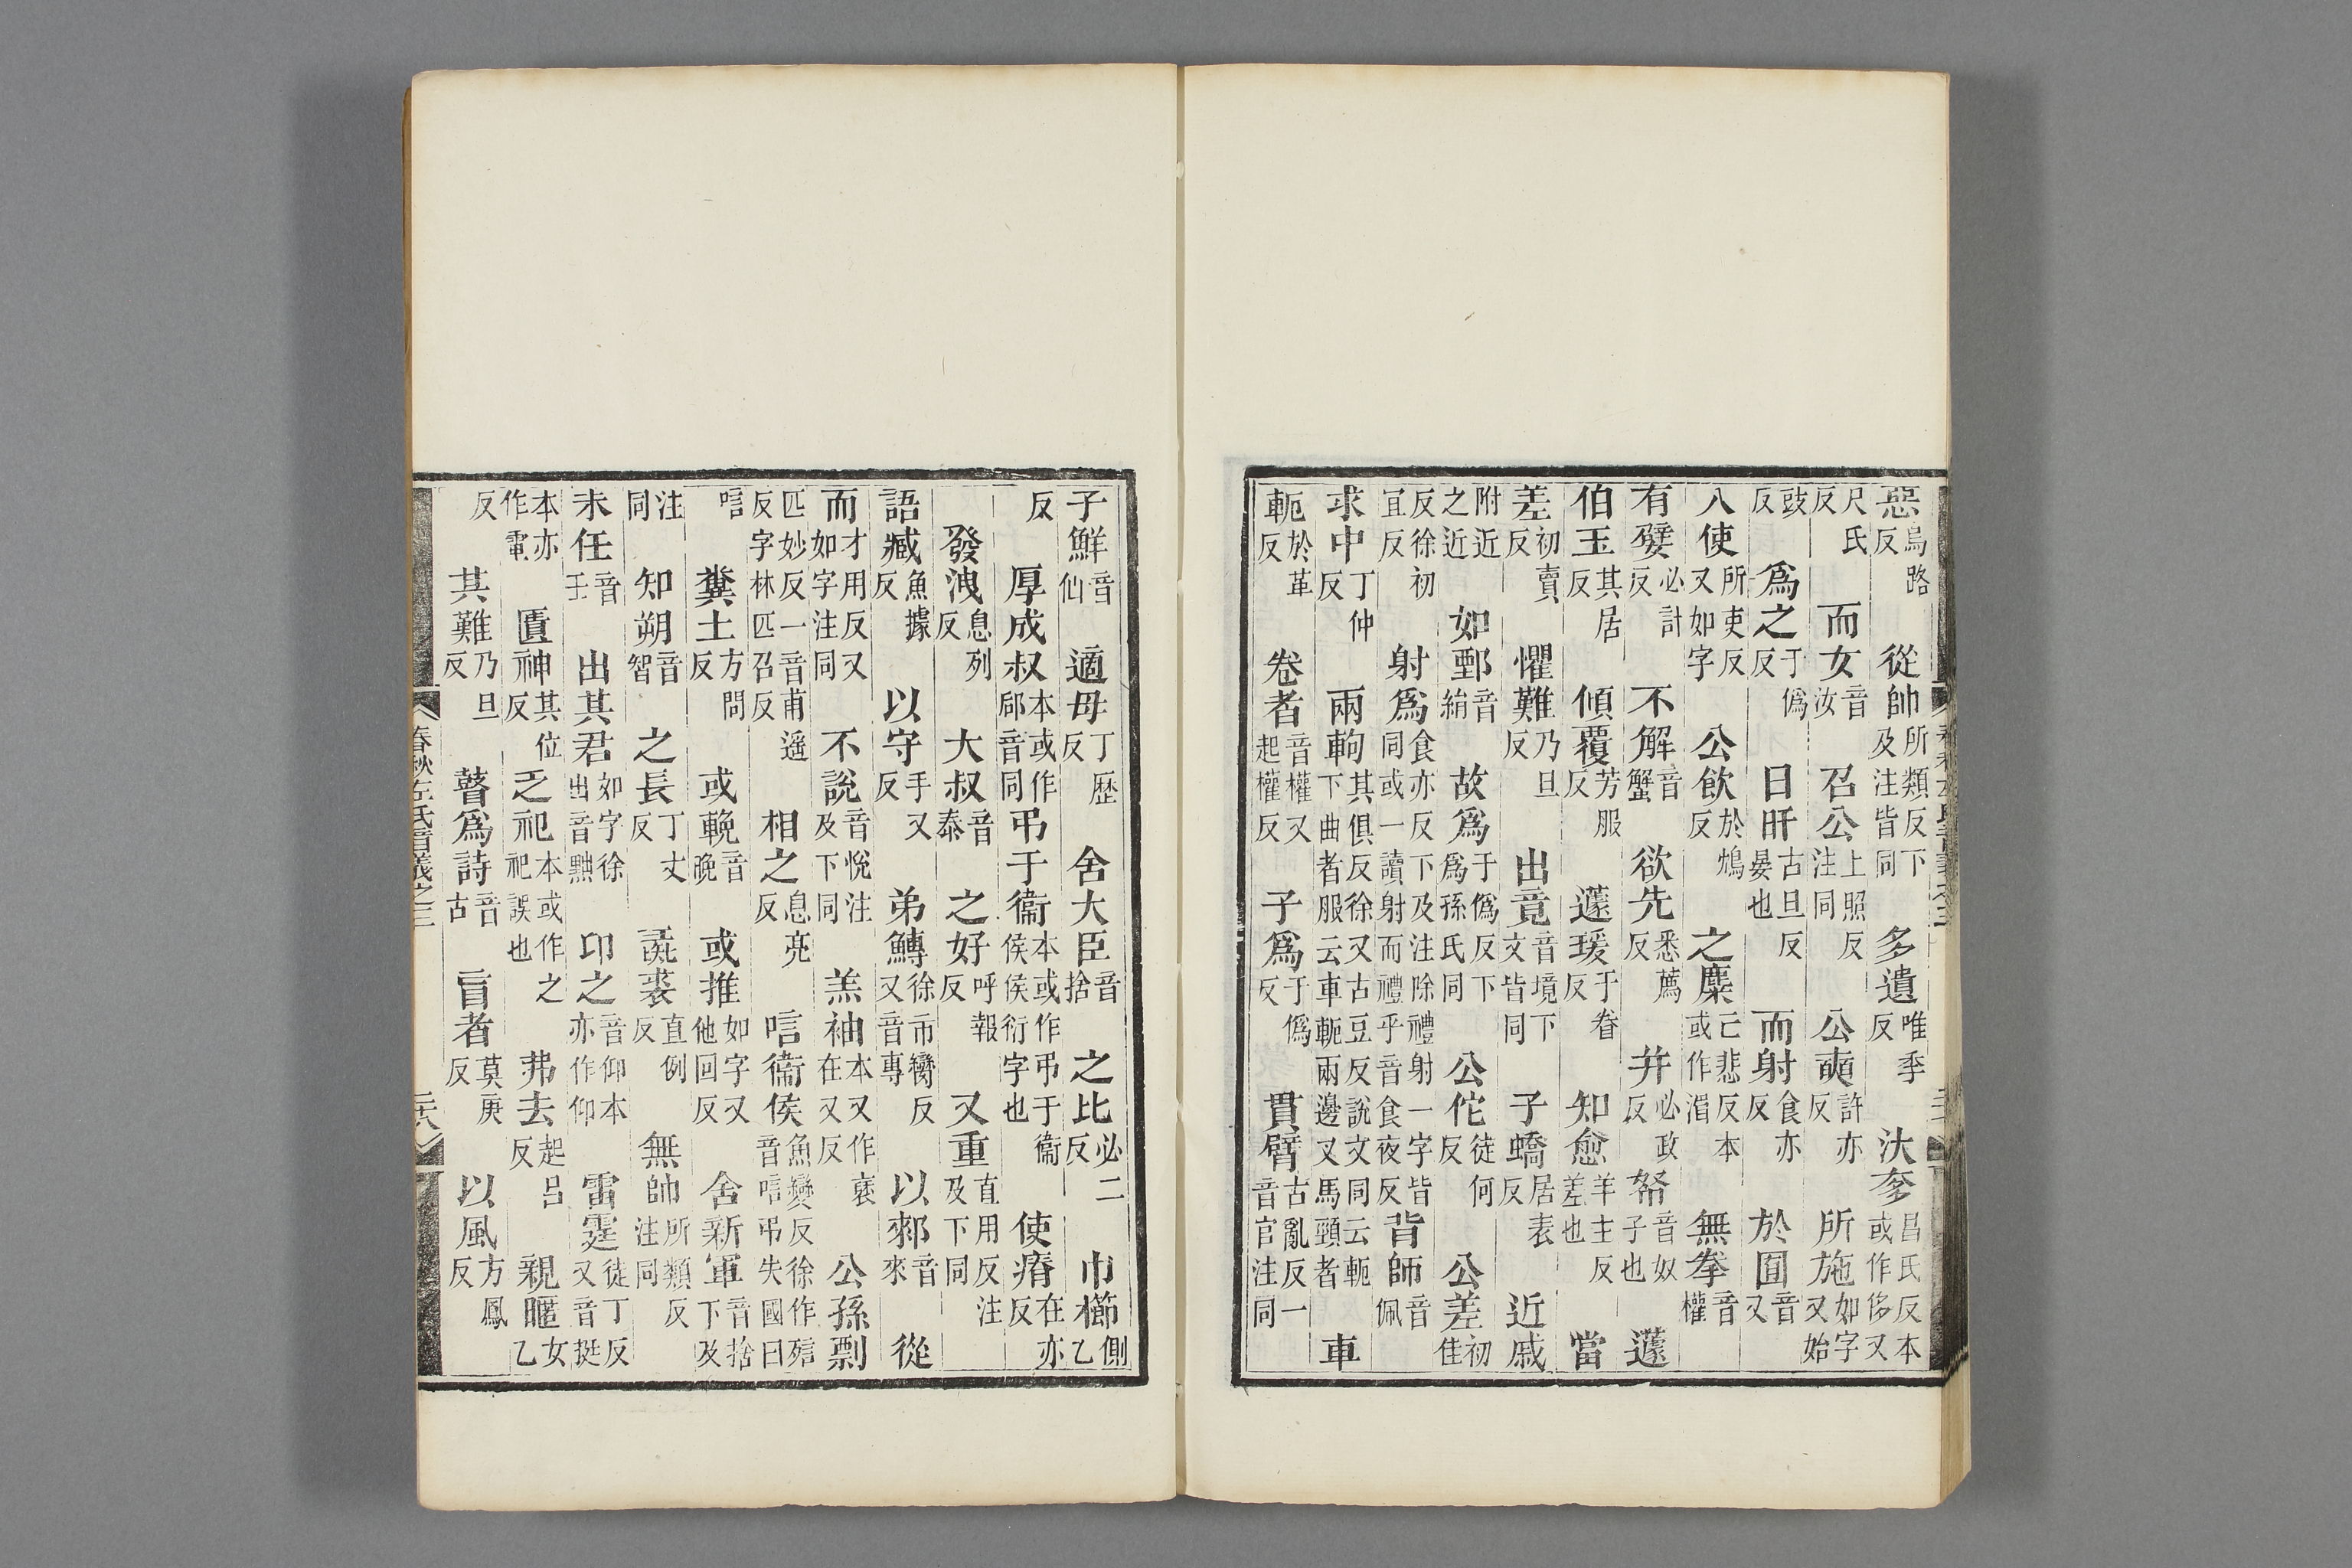 惡烏路反從帥所類反下及注皆同多遺唯季反汏奓昌氏反本或作侈又
尺氏反而女音汝召公上照反注同公奭許亦反所施如字又始
豉反爲之于僞反日旰古旦反晏也而射食亦反於囿音又
八使所吏反又如字公飲於鴆反之麋亡悲反本或作湄無拳音權
有嬖必計反不解音蟹欲先悉薦反幷必政反帑音奴子也蘧
伯玉其居反傾覆芳服反蘧瑗于眷反知愈羊主反差也當
差初賣反懼難乃旦反出竟音境下文皆同子蟜居表反近戚
附近之近如鄄音絹故爲于僞反下爲孫氏同公佗徒何反公差初佳
反徐初宜反射爲食亦反下及注除禮射一字皆同或一讀射而禮乎音食夜反背師音佩
求中丁仲反兩軥其俱反徐又古豆反說文同云軛下曲者服云車軛兩邊叉馬頸者車
軛於革反卷者音權又起權反子爲于僞反貫臂古亂反一音官注同
子鮮音仙適母丁歷反舍大臣音捨之比必二反巾櫛側乙
反厚成叔本或作郈音同弔于衞本或作弔于衞侯侯衍字也使瘠在亦反
發洩息列反大叔音泰之好呼報反又重直用反注及下同
語臧魚據反以守手又反弟鱄徐市臠反又音專以郲音來從
而才用反又如字注同不說音悅注及下同羔袖本又作褎在又反公孫剽
匹妙反一音甫遥反字林匹召反相之息亮反唁衞侯魚變反徐作殗音唁弔失國曰
唁糞土方問反或輓音晚或推如字又他回反舍新軍音捨下及
注同知朔音智之長丁丈反彘裘直例反無帥所類反注同
未任音壬出其君如字徐出音黜卬之音仰本亦作仰雷霆徒丁反又音挺
本亦作電匱神其位反乏祀本或作之祀誤也弗去起呂反親暱女乙
反其難乃旦反瞽爲詩音古盲者莫庚反以風方鳳反
春秋左氏音義之三